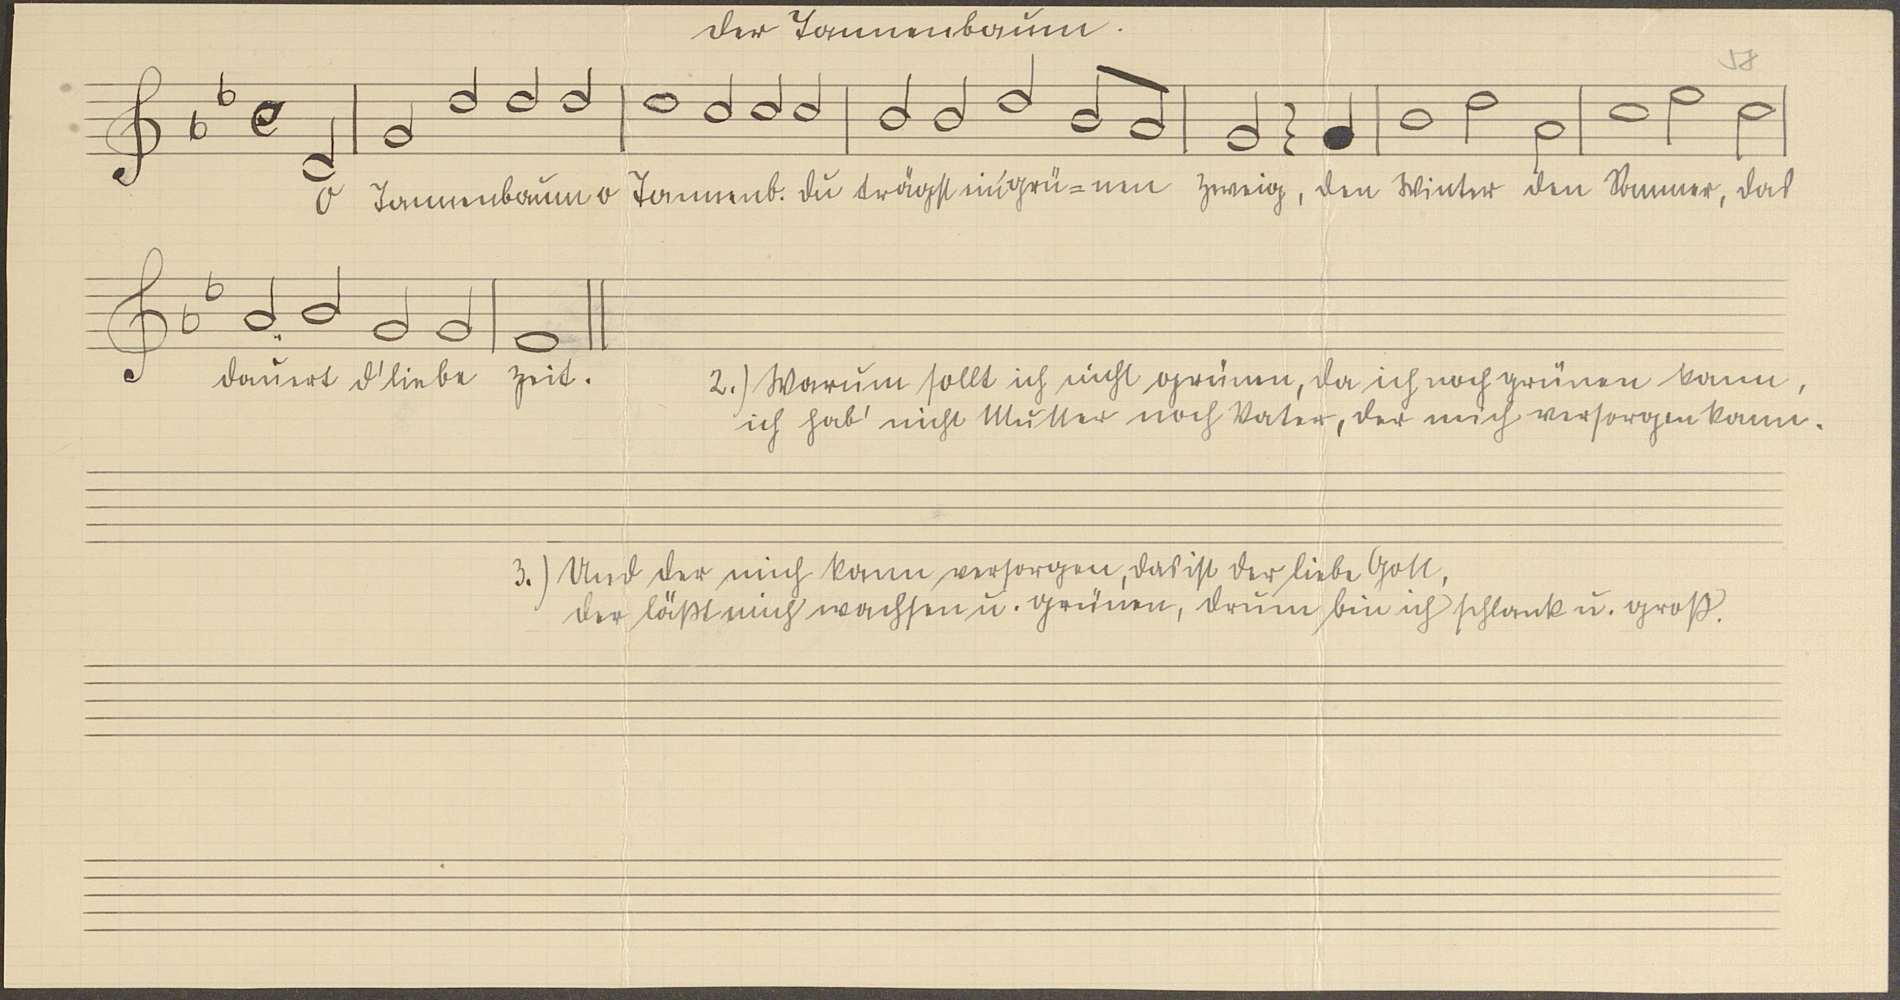 Der Tannenbaum.
58
O Tannenbaum o Tannenb. du trägst ein' grü=nen Zweig, den Winter den Sommer, das
dauert d' liebe Zeit.
2.) Warum sollt ich nicht grünen, da ich noch grünen kann,
ich hab' nicht Mutter noch Vater, der mich versorgen kann.
3.) Und der mich kann versorgen, das ist der liebe Gott,
der läßt mich wachsen u. grünen, drum bin ich schlank u. groß.